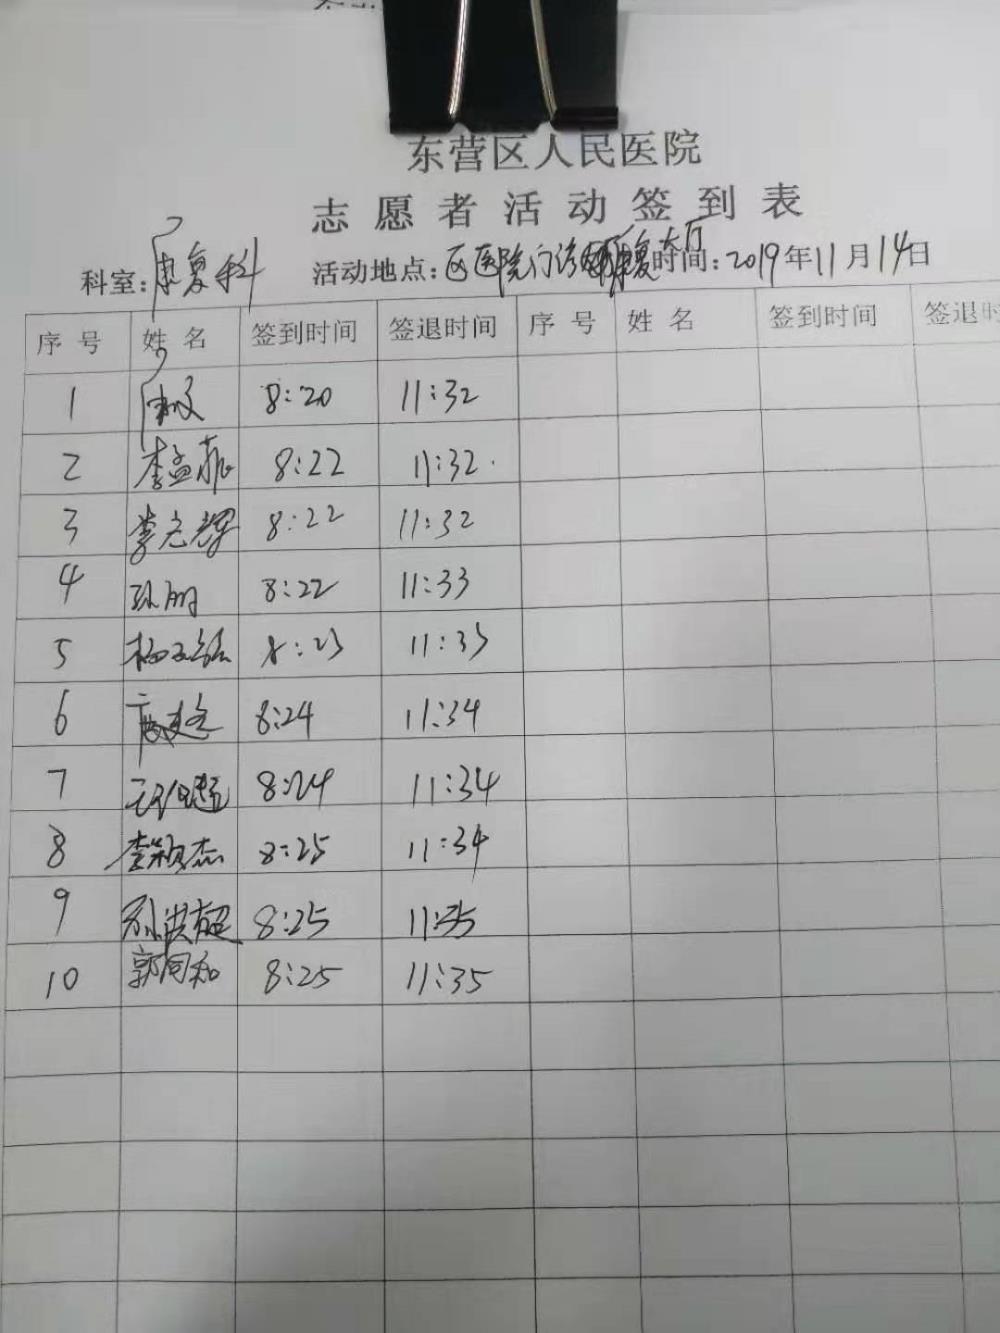 东营区人民医院
志愿者活动签到表
科室:康复科 活动地点:区医院门诊 大厅 时间:2019年11月14日
序号 姓名 签到时间 签退时间 序号 姓名 签到时间 签退时
1 8:20 11:32
2 李孟菲 8:22 11:32
3 李元辉 8:22 11:32
4 孙朋 8:22 11:33
5 8:23 11:33
6 8:24 11:34
7 8:24 11:34
8 李颖杰 8:25 11:34
9 孙洪超 8:25 11:35
10 郭同知 8:25 11:35